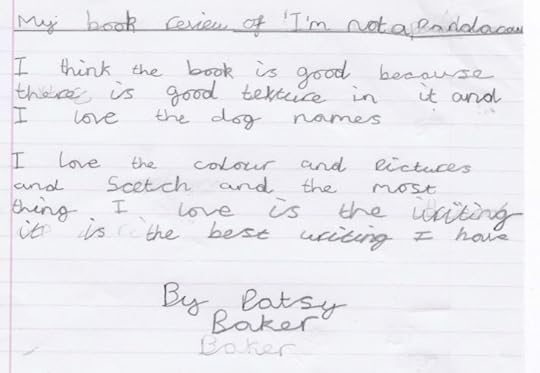 My book review of 'I'm not a Pandacow
I think the book is good because
there is good texture in it and
I love the dog names
I love the colour and Pictures
and Scetch and the most
thing I love is the writing
it is the best writing I have
By Patsy
Baker
Baker